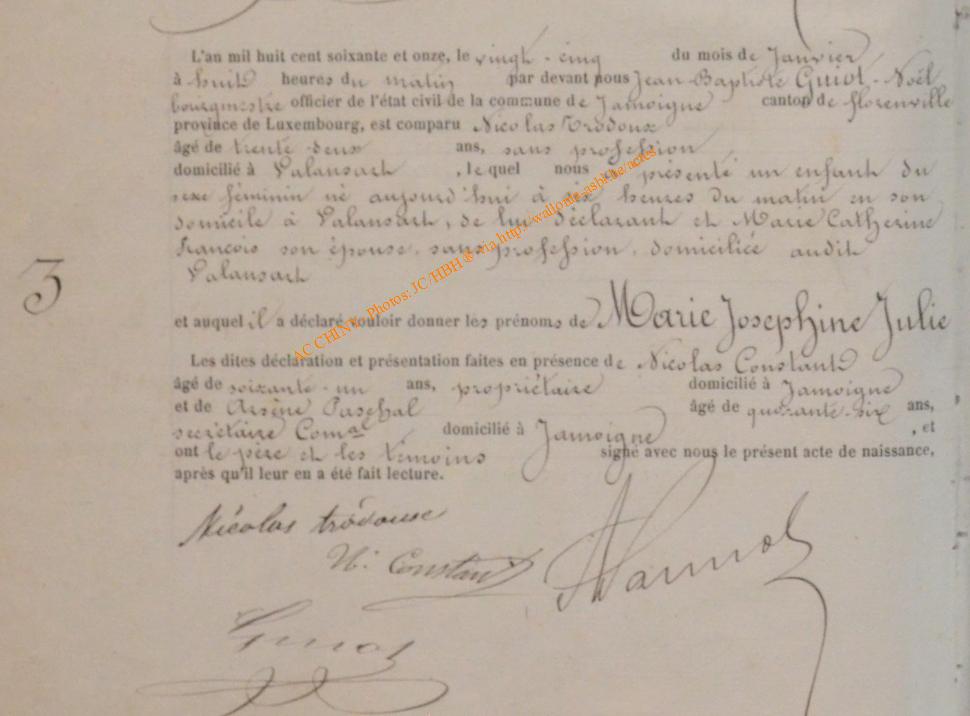 L'an mil huit cent soixante et onze, le vingt-cinq du mois de Janvier
à huit heures du matin par devant nous Jean-Baptiste Guiot-Noël
bourgmestre officier de l'état civil de la commune de Jamoigne canton de florenville
province de Luxembourg, est comparu Nicolas Trodoux
âgé de trente-deux ans, sans profession,
domicilié à Valansart, lequel nous a présenté un enfant du
sexe féminin né aujourd'hui à six heures du matin en son
domicile à Valansart, de lui déclarant et Marie Catherine
françois son épouse, sans profession, domiciliée audit
Valansart
3
et auquel il a déclaré vouloir donner les prénoms de Marie Josephine Julie
Les dites déclaration et présentation faites en présence de Nicolas Constant
âgé de soixante-un ans, propriétaire domicilié à Jamoigne
et de Arsène Paschal âgé de quarante-six ans,
secrétaire Comal domicilié à Jamoigne, et
ont le père et les témoins signé avec nous le présent acte de naissance,
après qu'il leur en a été fait lecture.
Nicolas trodoux
N. Constant
AC CHINY - Photos: JC/HBH @ via http://wallonie-asbl.be/actes